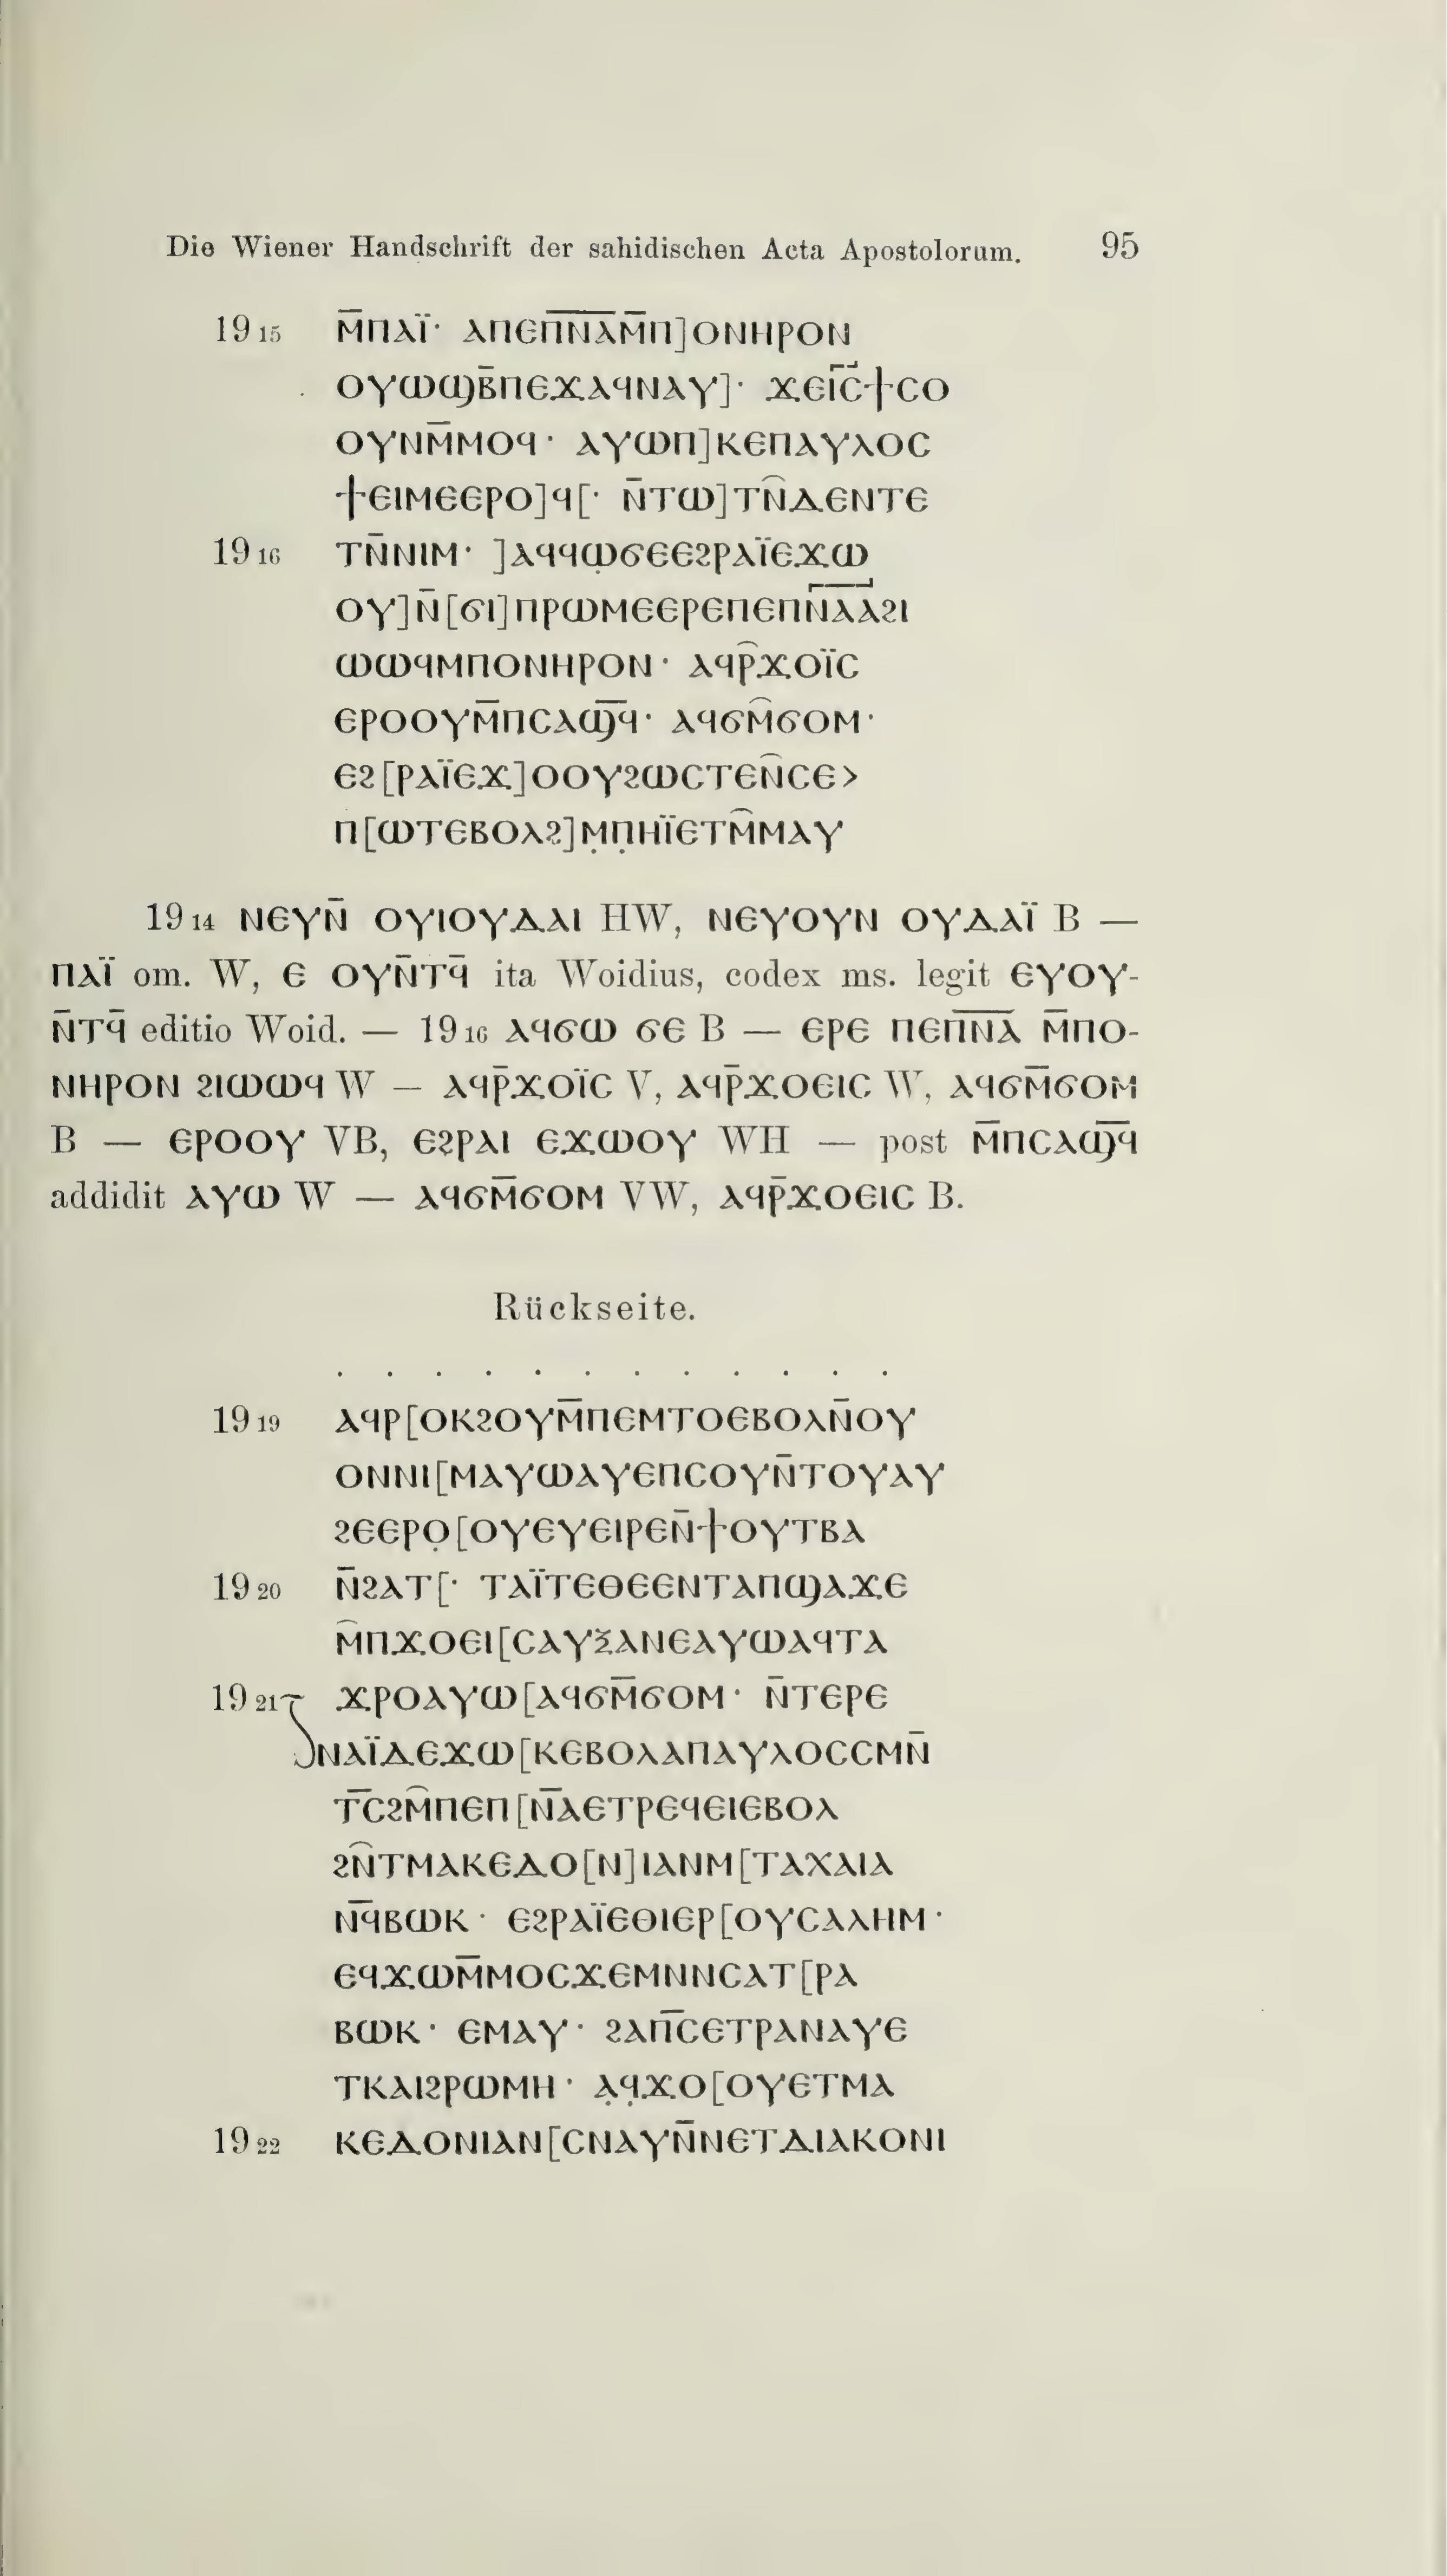 Die Wiener Handschrift der sahidischen Acta Apostolorum. 95
19 15 ⲙ̅ⲡⲁⲓ̈· ⲁⲡⲉⲡ̅ⲛ̅ⲁ̅ⲙ̅ⲡ]ⲟⲛⲏⲣⲟⲛ
ⲟⲩⲱϣⲃ̅ⲡⲉϫⲁϥⲛⲁⲩ]· ϫⲉⲓ̅ⲥ̅ϯⲥⲟ
ⲟⲩⲛⲙ̅ⲙⲟϥ· ⲁⲩⲱⲡ]ⲕⲉⲡⲁⲩⲗⲟⲥ
ϯⲉⲓⲙⲉⲉⲣⲟ]ϥ[· ⲛ̅ⲧⲱ]ⲧⲛ̂ⲇⲉⲛⲧⲉ
19 16 ⲧⲛ̅ⲛⲓⲙ· ]ⲁϥϥⲱ̣ϭⲉⲉϩⲣⲁⲓ̈ⲉϫⲱ
ⲟⲩ]ⲛ̅[ϭⲓ]ⲡⲣⲱⲙⲉⲉⲣⲉⲡⲉⲡⲛ̅ⲁ̅ⲁ̅ϩⲓ
ⲱⲱϥⲙⲡⲟⲛⲏⲣⲟⲛ· ⲁϥⲣ̂ϫⲟⲓ̈ⲥ
ⲉⲣⲟⲟⲩⲙ̅ⲡⲥⲁϣ̅ϥ̅· ⲁϥϭⲙ̂ϭⲟⲙ·
ⲉϩ[ⲣⲁⲓ̈ⲉϫ]ⲟⲟⲩϩⲱⲥⲧⲉⲛ̂ⲥⲉ>
ⲡ[ⲱⲧⲉⲃⲟⲗϩ]ⲙ̣ⲡ̣ⲏⲓ̈ⲉⲧⲙ̂ⲙⲁⲩ
19 14 ⲛⲉⲩⲛ̅ ⲟⲩⲓⲟⲩⲇⲁⲓ HW, ⲛⲉⲩⲟⲩⲛ ⲟⲩⲇⲁⲓ̈ B —
ⲡⲁⲓ̈ om. W, ⲉ ⲟⲩⲛ̅ⲧϥ̅ ita Woidius, codex ms. legit ⲉⲩⲟⲩ-
ⲛ̅ⲧϥ̅ editio Woid. — 19 16 ⲁϥϭⲱ ϭⲉ B — ⲉⲣⲉ ⲡⲉⲡ̅ⲛ̅ⲁ̅ ⲙ̅ⲡⲟ-
ⲛⲏⲣⲟⲛ ϩⲓⲱⲱϥ W – ⲁϥⲣ̅ϫⲟⲓ̈ⲥ V, ⲁϥⲣ̅ϫⲟⲉⲓⲥ W, ⲁϥϭⲙ̅ϭⲟⲙ
B — ⲉⲣⲟⲟⲩ VB, ⲉϩⲣⲁⲓ ⲉϫⲱⲟⲩ WH — post ⲙ̅ⲡⲥⲁϣ̅ϥ̅
addidit ⲁⲩⲱ W — ⲁϥϭⲙ̅ϭⲟⲙ VW, ⲁϥⲣ̅ϫⲟⲉⲓⲥ B.
Rückseite.
. . . . . . . . . . . .
19 19 ⲁϥⲣ[ⲟⲕϩⲟⲩⲙ̅ⲡⲉⲙⲧⲟⲉⲃⲟⲗⲛ̅ⲟⲩ
ⲟⲛⲛⲓ[ⲙⲁⲩⲱⲁⲩⲉⲡⲥⲟⲩⲛ̅ⲧⲟⲩⲁⲩ
ϩⲉⲉⲣⲟ̣[ⲟⲩⲉⲩⲉⲓⲣⲉⲛ̅ϯⲟⲩⲧⲃⲁ
19 20 ⲛ̅ϩⲁⲧ[· ⲧⲁⲓ̈ⲧⲉⲑⲉⲉⲛⲧⲁⲡϣⲁϫⲉ
ⲙ̂ⲡϫⲟⲉⲓ[ⲥⲁⲩⲝⲁⲛⲉⲁⲩⲱⲁϥⲧⲁ
19 21 ϫⲣⲟⲁⲩⲱ[ⲁϥϭⲙ̅ϭⲟⲙ· ⲛ̅ⲧⲉⲣⲉ
ⲛⲁⲓ̈ⲇⲉϫⲱ[ⲕⲉⲃⲟⲗⲁⲡⲁⲩⲗⲟⲥⲥⲙⲛ̅
ⲧ̅ⲥ̅ϩⲙ̂ⲡⲉⲡ[ⲛ̅ⲁ̅ⲉⲧⲣⲉϥⲉⲓⲉⲃⲟⲗ
ϩⲛ̂ⲧⲙⲁⲕⲉⲇⲟ[ⲛ]ⲓⲁⲛⲙ[ⲧⲁⲭⲁⲓⲁ
ⲛ̅ϥ̅ⲃⲱⲕ· ⲉϩⲣⲁⲓ̈ⲉⲑⲓⲉⲣ[ⲟⲩⲥⲁⲗⲏⲙ·
ⲉϥϫⲱⲙ̅ⲙⲟⲥϫⲉⲙⲛⲛⲥⲁⲧ[ⲣⲁ
ⲃⲱⲕ· ⲉⲙⲁⲩ· ϩⲁⲡ̅ⲥ̅ⲉⲧⲣⲁⲛⲁⲩⲉ
ⲧⲕⲁⲓϩⲣⲱⲙⲏ· ⲁ̣ϥ̣ϫⲟ[ⲟⲩⲉⲧⲙⲁ
19 22 ⲕⲉⲇⲟⲛⲓⲁⲛ[ⲥⲛⲁⲩⲛ̅ⲛⲉⲧⲇⲓⲁⲕⲟⲛⲓ